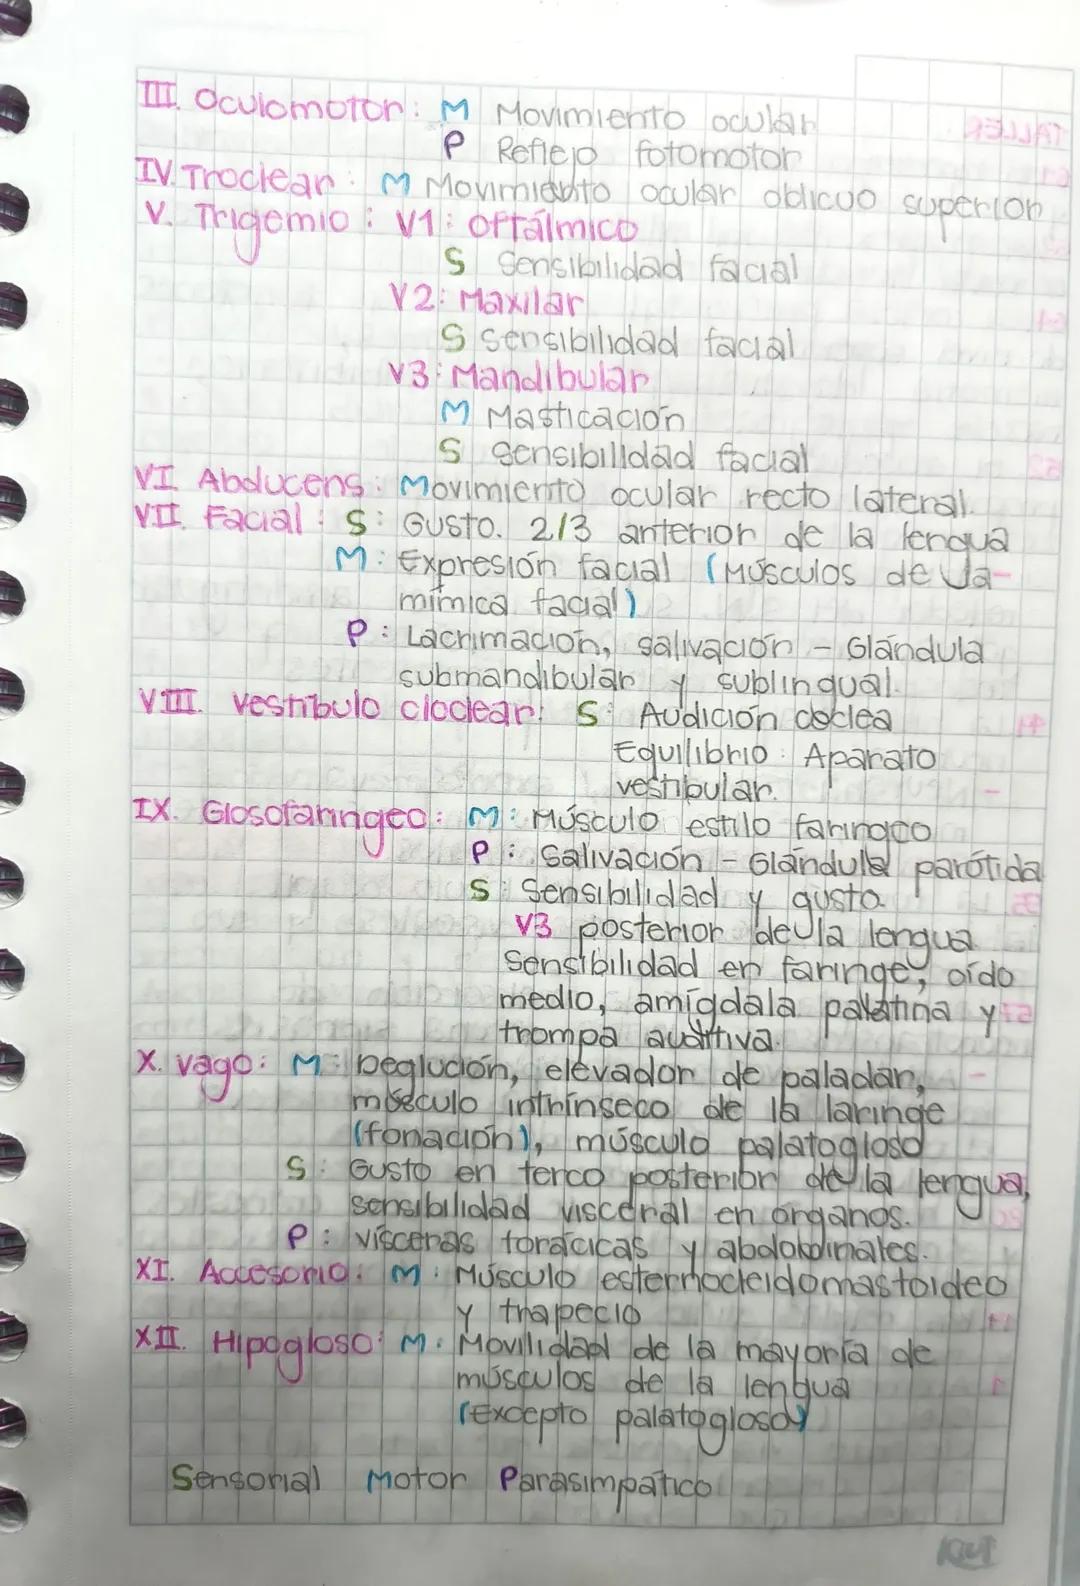 III. Oculomotor: M Movimiento ocular
P Reflejo fotomotor
IV. Troclear: M Movimiento ocular oblicuo superior
V. Trigemio: V1: Oftálmico
S Sensibilidad facial
V2: Maxilar
S Sensibilidad facial
V3: Mandibular
M Masticación
S Sensibilidad facial
VI. Abducens: Movimiento ocular recto lateral.
VII. Facial: S: Gusto. 2/3 anterior de la lengua
M: Expresión facial (Músculos de la
mímica facial)
P: Lacrimación, salivación - Glándula
submandibular y sublingual.
VIII. Vestíbulo cloclear: S: Audición coclea
Equilibrio: Aparato
vestibular.
IX. Glosofaríngeo: M: Músculo estilo faríngeo
P: Salivación - Glándula parótida
S: Sensibilidad y gusto
V3 posterior de la lengua
Sensibilidad en faringe, oído
medio, amígdala palatina y
trompa auditiva.
X. Vago: M: Deglución, elevador de paladar,
músculo intrínseco de la laringe
(fonación), músculo palatogloso
S: Gusto en terco posterior de la lengua,
sensibilidad visceral en órganos.
P: vísceras torácicas y abdominales.
XI. Accesorio: M: Músculo esternocleidomastoideo
y trapecio
XII. Hipogloso: M: Movilidad de la mayoría de
músculos de la lengua
(Excepto palatogloso)
Sensorial Motor Parasimpático